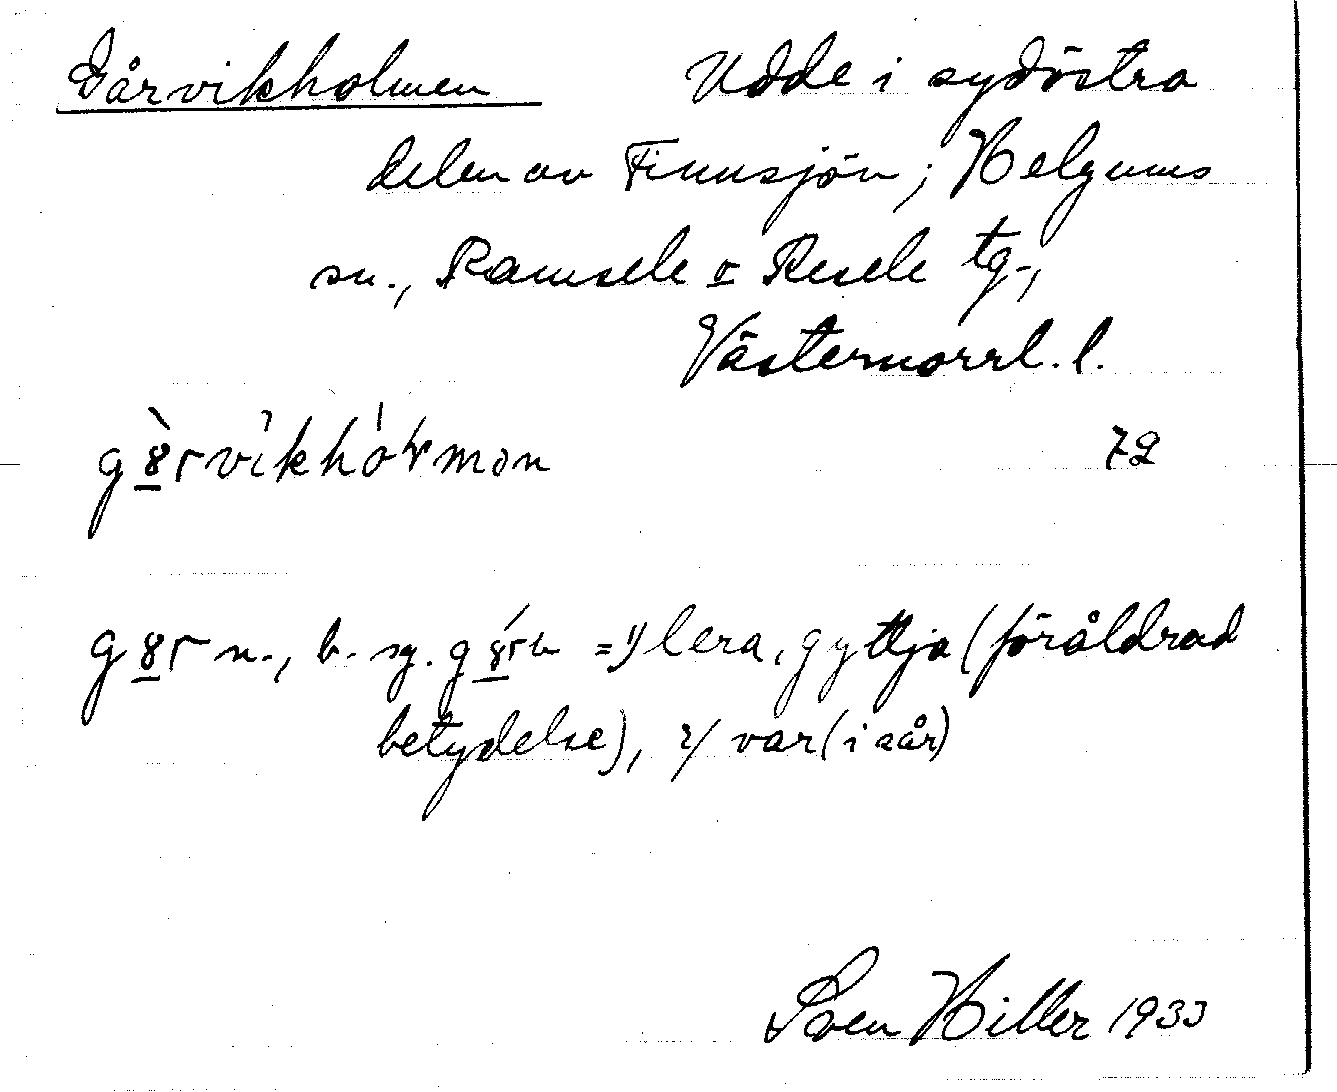 Gårvikholmen Udde i sydöstra
delen av Finnsjön; Helgums
sn., Ramsele o Resele tg.,
Västernorrl. l.
72
n., b. sg. = 1/ lera, gyttja (föråldrad
betydelse), 2/ var (i sår)
Sven Hiller 1933